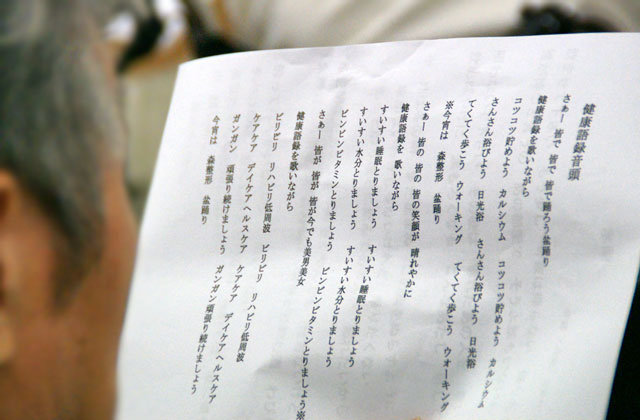 健康語録音頭
さぁー 皆で 皆で 皆で踊ろう盆踊り
健康語録を歌いながら
コツコツ貯めよう カルシウム コツコツ貯めよう カルシウム
さんさん浴びよう 日光浴 さんさん浴びよう 日光浴
てくてく歩こう ウオーキング てくてく歩こう ウオーキング
※今宵は 森整形 盆踊り
さぁー 皆の 皆の 皆の笑顔が 晴れやかに
健康語録を 歌いながら
すいすい睡眠とりましょう すいすい睡眠とりましょう
すいすい水分とりましょう すいすい水分とりましょう
ビンビンビタミンとりましょう ビンビンビタミンとりましょう※
さぁー 皆が 皆が 皆が今でも美男美女
健康語録を歌いながら
ビリビリ リハビリ低周波 ビリビリ リハビリ低周波
ケアケア デイケアヘルスケア ケアケア デイケアヘルスケア
ガンガン 頑張り続けましょう ガンガン頑張り続けましょう
今宵は 森整形 盆踊り